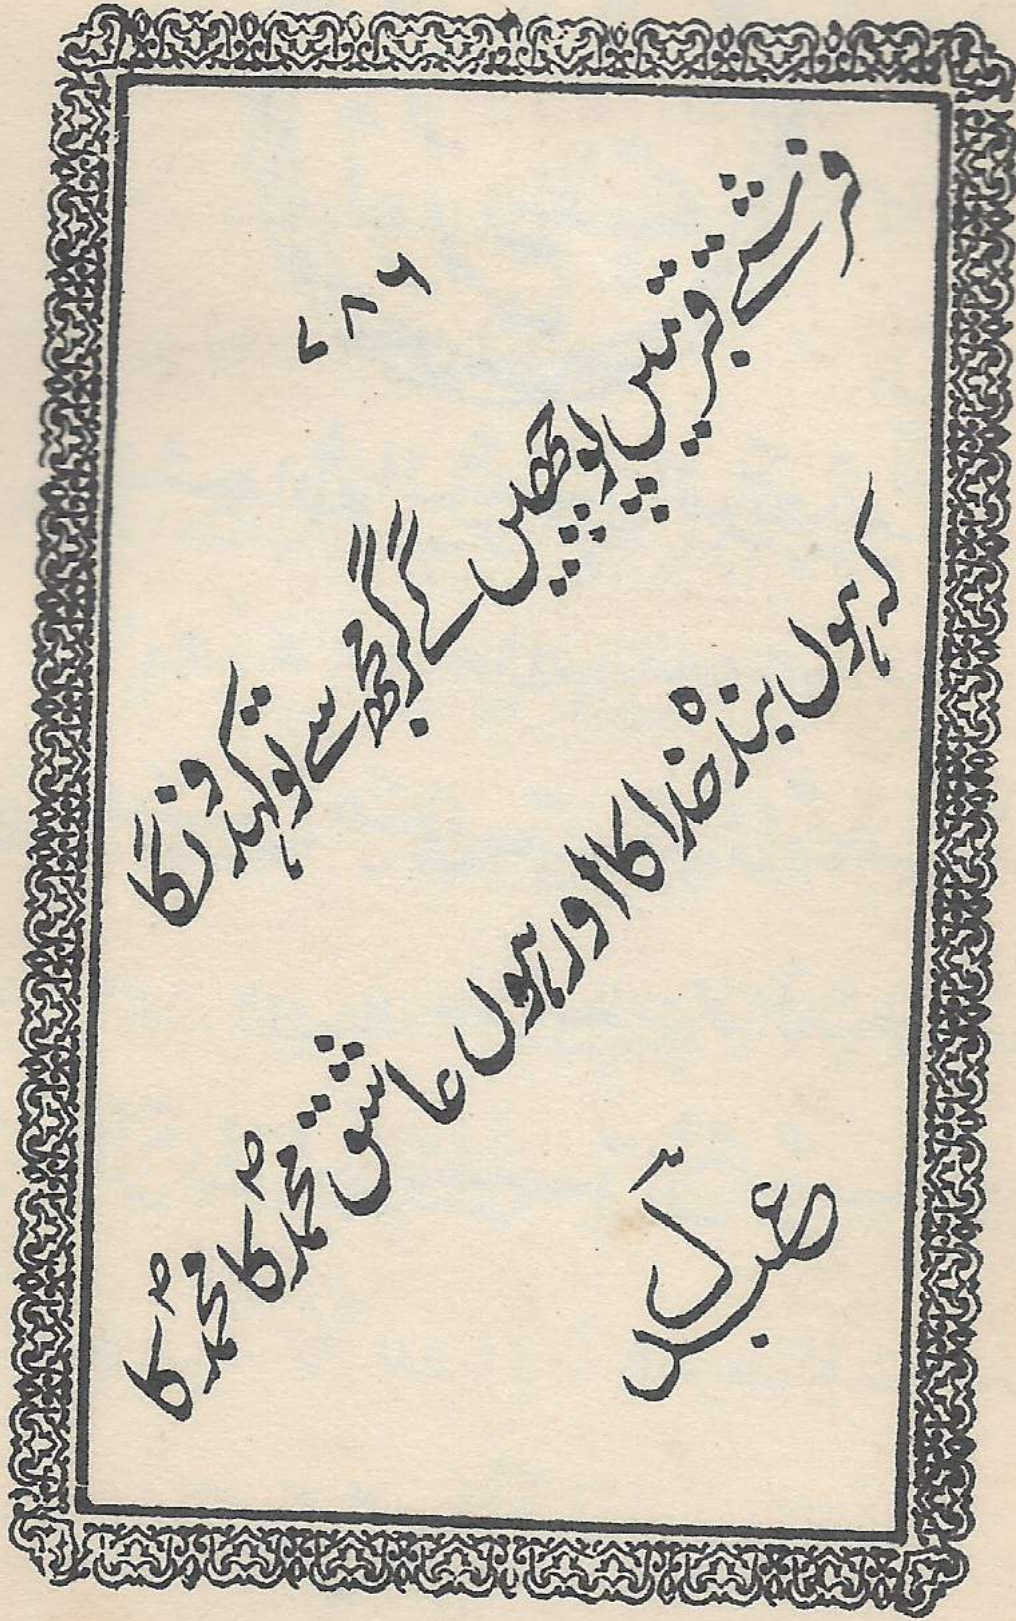 ۷۸۶
فرشتے قبر میں پوچھیں گے گر مجھ سے تو کہدونگا
کہ ہوں بندہ خدا کا اور ہوں عاشق محمدؐ کا محمدؐ کا